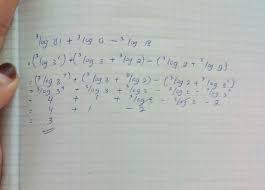 ³log 81 + ³log 6 - ³log 18
= (³log 3⁴) + (³log 3 + ³log 2) - (³log 2 + ³log 9)
= (³log 3⁴) + (³log 3 + ³log 2) - (³log 2 + ³log 3²)
= ³log 3⁴ + ³log 3 + ³log 2 - ³log 2 - ³log 3²
= 4 + 1 + ³log 2 - ³log 2 - 2
= 4 + 1 - 2
= 3